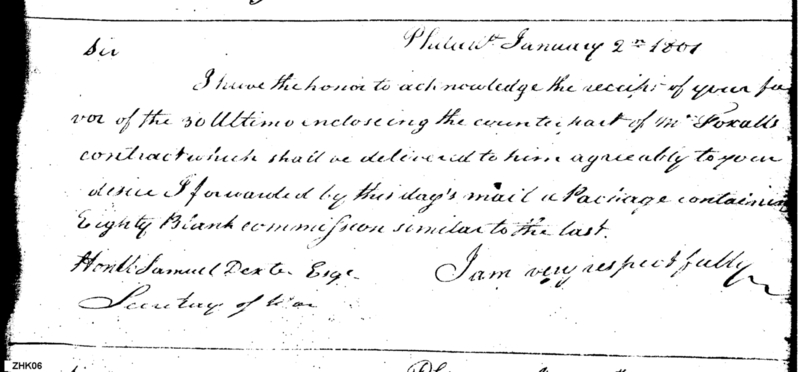 Philadª. January 2nd 1801
Sir
I have the honor to acknowledge the receipt of your fa
vor of the 30 Ultimo incloseing the counterpart of Mr Foxalls
contract which shall be delivered to him agreeably to your
desire I forwarded by this day's mail a Package containing
Eighty Blank commission similar to the last.
I am very respectfully
Honble Samuel Dexter Esqr
Secretary of War
ZHK06